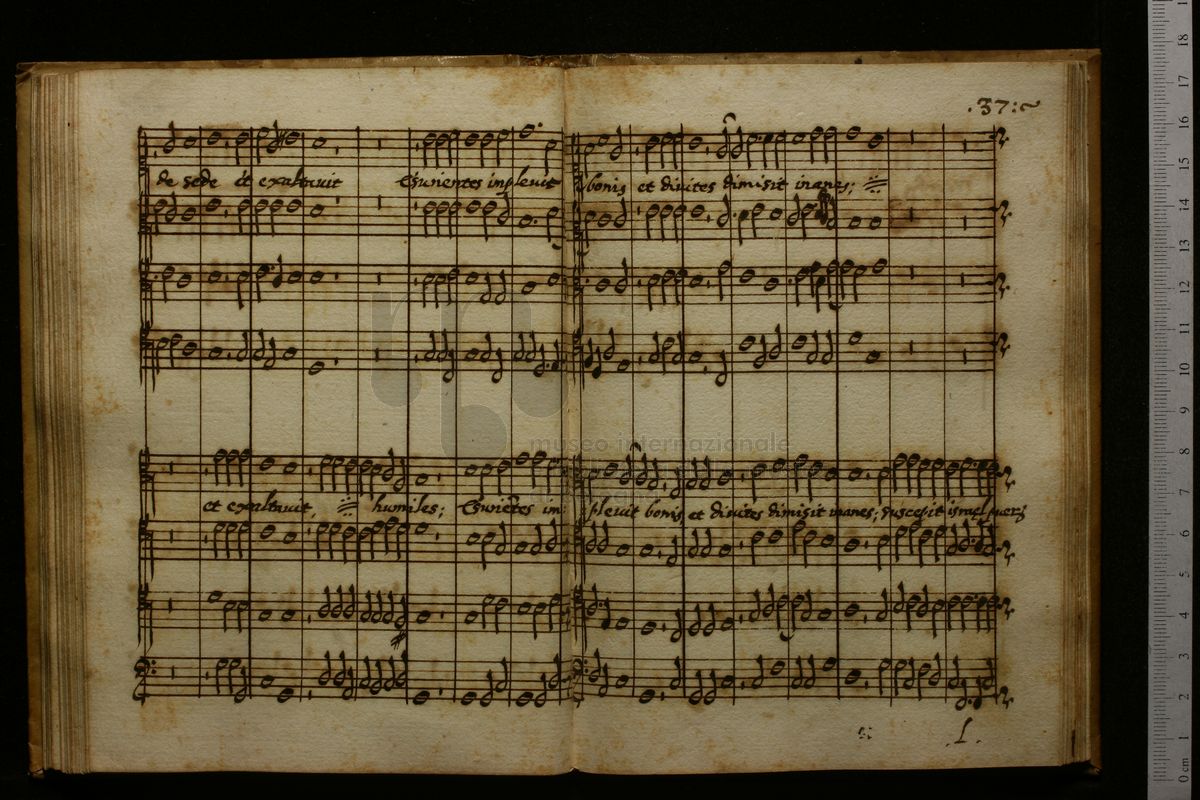 .37:~
de sede et exaltavit Esurientes implevit bonis et divites dimisit inanes;
et exaltavit, humiles; Esuriẽtes im plevit bonis et divites dimisit inanes; suscepit israel
museo internazionale
L.
18
17
16
15
14
13
12
11
10
9
8
7
6
5
4
3
2
1
0 cm